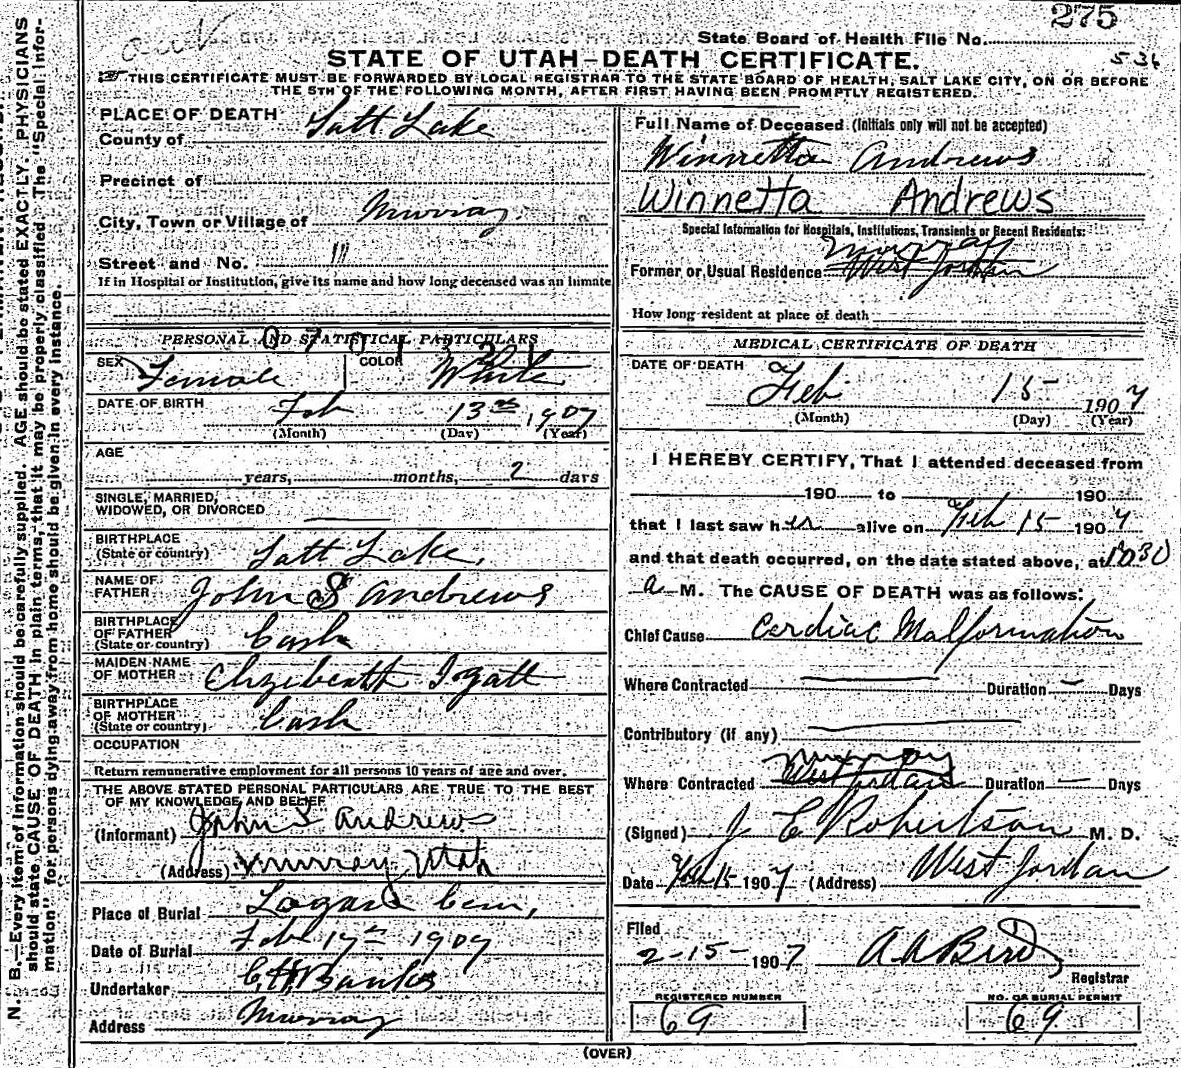 275
State Board of Health File No.
536
STATE OF UTAH-DEATH CERTIFICATE.
THIS CERTIFICATE MUST BE FORWARDED BY LOCAL REGISTRAR TO THE STATE BOARD OF HEALTH, SALT LAKE CITY, ON OR BEFORE
THE 5TH OF THE FOLLOWING MONTH, AFTER FIRST HAVING BEEN PROMPTLY REGISTERED.
PLACE OF DEATH
County of Salt Lake
Precinct of
City, Town or Village of Murray
Street and No. "
If in Hospital or Institution, give its name and how long deceased was an inmate
PERSONAL AND STATISTICAL PARTICULARS
SEX Female COLOR White
DATE OF BIRTH Feb 13th 1907
(Month) (Day) (Year)
AGE
years, months, 2 days
SINGLE, MARRIED,
WIDOWED, OR DIVORCED
BIRTHPLACE
(State or country) Salt Lake,
NAME OF
FATHER John S Andrews
BIRTHPLACE
OF FATHER
(State or country) Cash
MAIDEN NAME
OF MOTHER
BIRTHPLACE
OF MOTHER
(State or country) Cash
OCCUPATION
Return remunerative employment for all persons 10 years of age and over.
THE ABOVE STATED PERSONAL PARTICULARS ARE TRUE TO THE BEST
OF MY KNOWLEDGE AND BELIEF
(Informant) John S Andrews
(Address) Murray Utah
Place of Burial Logan Cem,
Date of Burial Feb 17th 1907
Undertaker Banks
Address Murray
Full Name of Deceased (Initials only will not be accepted)
Winnetta Andrews
Winnetta Andrews
Special Information for Hospitals, Institutions, Transients or Recent Residents:
Murray
Former or Usual Residence West Jordan
How long resident at place of death
MEDICAL CERTIFICATE OF DEATH
DATE OF DEATH
Feb 15 1907
(Month) (Day) (Year)
I HEREBY CERTIFY, That I attended deceased from
190 to 190
that I last saw her alive on Feb 15 1907
and that death occurred, on the date stated above, at 1030
a M. The CAUSE OF DEATH was as follows:
Chief Cause Cardiac Malformation
Where Contracted Duration Days
Contributory (if any)
Murray
Where Contracted West Jordan Duration Days
(Signed) J E Robertson M. D.
Date Feb 15 1907 (Address) West Jordan
Filed
2-15-1907 A A Bird
Registrar
REGISTERED NUMBER
69
NO. OR BURIAL PERMIT
69
(OVER)
N. B.—Every item of information should be carefully supplied. AGE should be stated EXACTLY. PHYSICIANS
should state CAUSE OF DEATH in plain terms, that it may be properly classified. The "Special Infor-
mation" for persons dying away from home should be given in every instance.